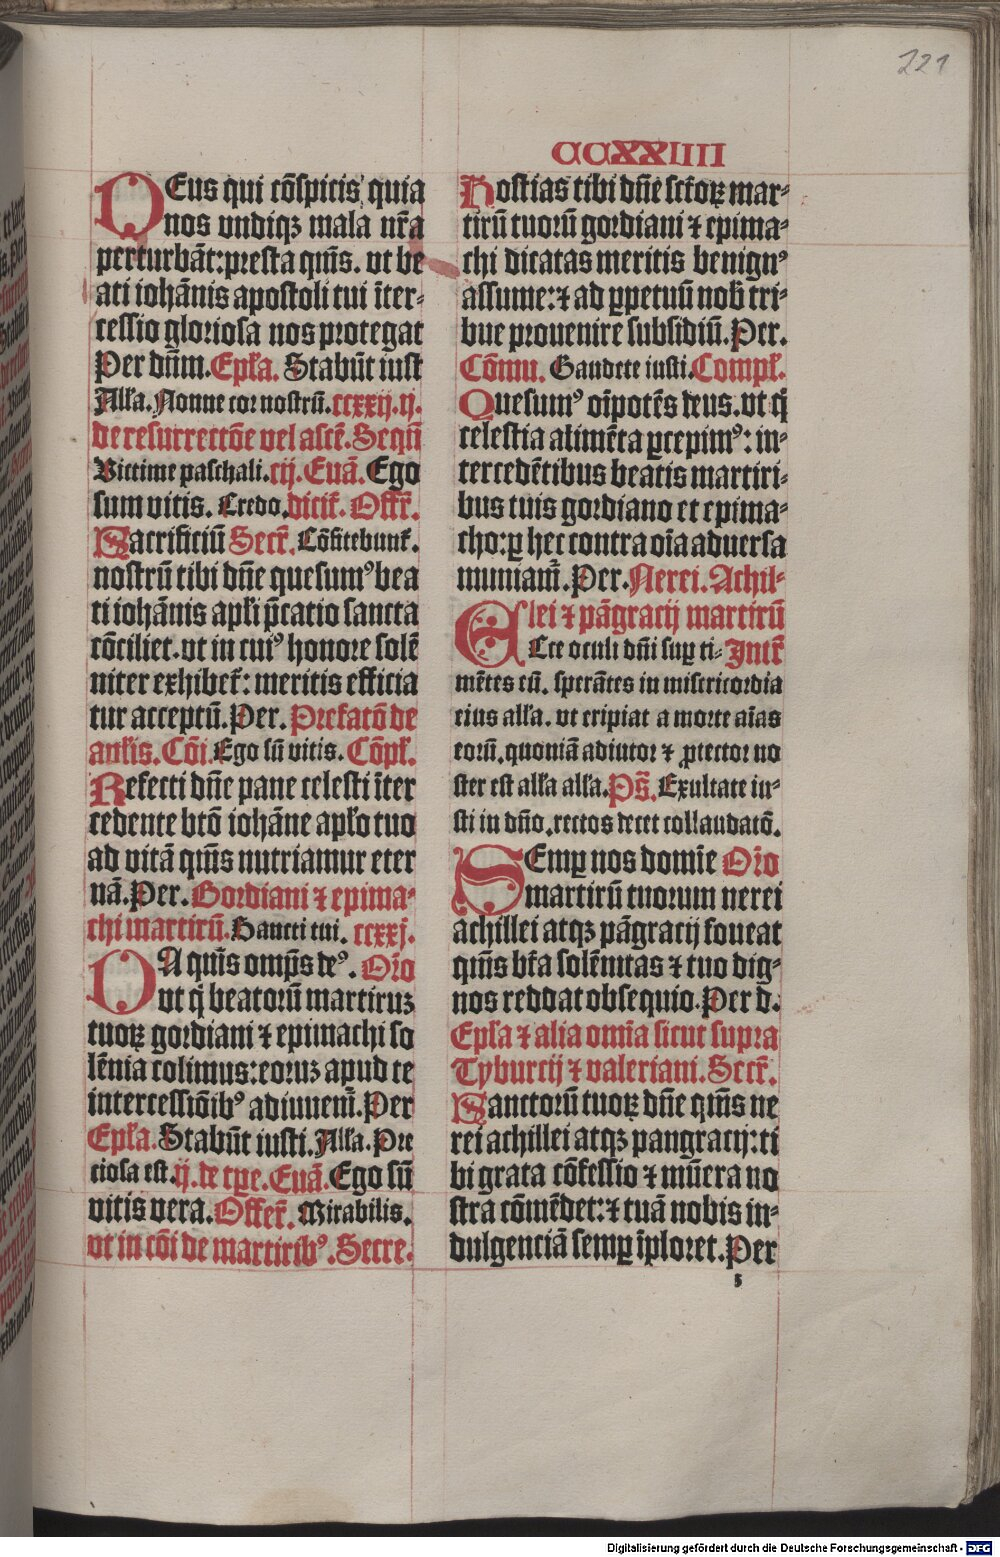 221
CCXXIIII
DEus qui cōspicis quia
nos vndiqꝫ mala nr̄a
perturbāt: presta qm̄s. vt be
ati iohānis apostoli tui īter-
cessio gloriosa nos protegat
Per dn̄m. Epl̄a. Stabūt iust
All̄a. Nonne cor nostrū. ccxxij. ij.
de resurrectōe vel ascē. Sequē
Victime paschali. cij. Euā. Ego
sum vitis. Credo. dicit̄. Offr̄.
Sacrificiū Secr̄. Cōfitebunt̄.
nostrū tibi dn̄e quesumꝰ bea
ti iohānis apl̄i p̄catio sancta
cōciliet. vt in cuiꝰ honore solē
niter exhibet̄: meritis efficia
tur acceptū. Per. Prefatō de
apl̄is. Cōi. Ego sū vitis. Cōpl̄.
Refecti dn̄e pane celesti īter
cedente btō iohāne apl̄o tuo
ad vitā qm̄s nutriamur eter
nā. Per. Gordiani ⁊ epima-
chi martirū. Sancti tui. ccxxj.
DA quīs omp̄s deꝰ. Orō
vt q̄ beatorū martiruꝫ
tuoꝝ gordiani ⁊ epimachi so
lēnia colimus: eoruꝫ apud te
intercessiōibꝰ adiuuem̄. Per
Epl̄a. Stabūt iusti. All̄a. Pre
ciosa est. ij. de tꝑe. Euā. Ego sū
vitis vera. Offer̄. Mirabilis.
vt in cōi de martiribꝰ. Secre.
Hostias tibi dn̄e sctōꝝ mar-
tirū tuorū gordiani ⁊ epima-
chi dicatas meritis benignꝰ
assume: ⁊ ad ꝑpetuū nob̄ tri-
bue prouenire subsidiū. Per.
Cōmu. Gaudete iusti. Compl̄.
Quesumꝰ oīpotēs deus. vt q̄
celestia alimēta ꝑcepimꝰ: in-
tercedētibus beatis martiri-
bus tuis gordiano et epima-
cho: ꝑ hec contra oīa aduersa
muniam̄. Per. Nerei. Achil-
lei ⁊ pāgracij martirū
ECce oculi dn̄i suꝑ ti- Intr̄
mētes eū. sperātes in misericordia
eius all̄a. vt eripiat a morte aīas
eorū. quoniā adiutor ⁊ ꝓtector no
ster est all̄a all̄a. Ps̄. Exultate iu-
sti in dn̄o. rectos decet collaudatō.
SEmꝑ nos domīe Orō
martirū tuorum nerei
achillei atqꝫ pāgracij foueat
qm̄s bt̄a solēnitas ⁊ tuo dig-
nos reddat obsequio. Per d.
Epl̄a ⁊ alia omīa sicut supra
Tyburcij ⁊ valeriani. Secr̄.
Sanctorū tuoꝝ dn̄e qm̄s ne
rei achillei atqꝫ pangracij: ti
bi grata cōfessio ⁊ mūera no
stra cōmēdet: ⁊ tuā nobis in-
dulgenciā semꝑ īploret. Per
s
Digitalisierung gefördert durch die Deutsche Forschungsgemeinschaft - DFG